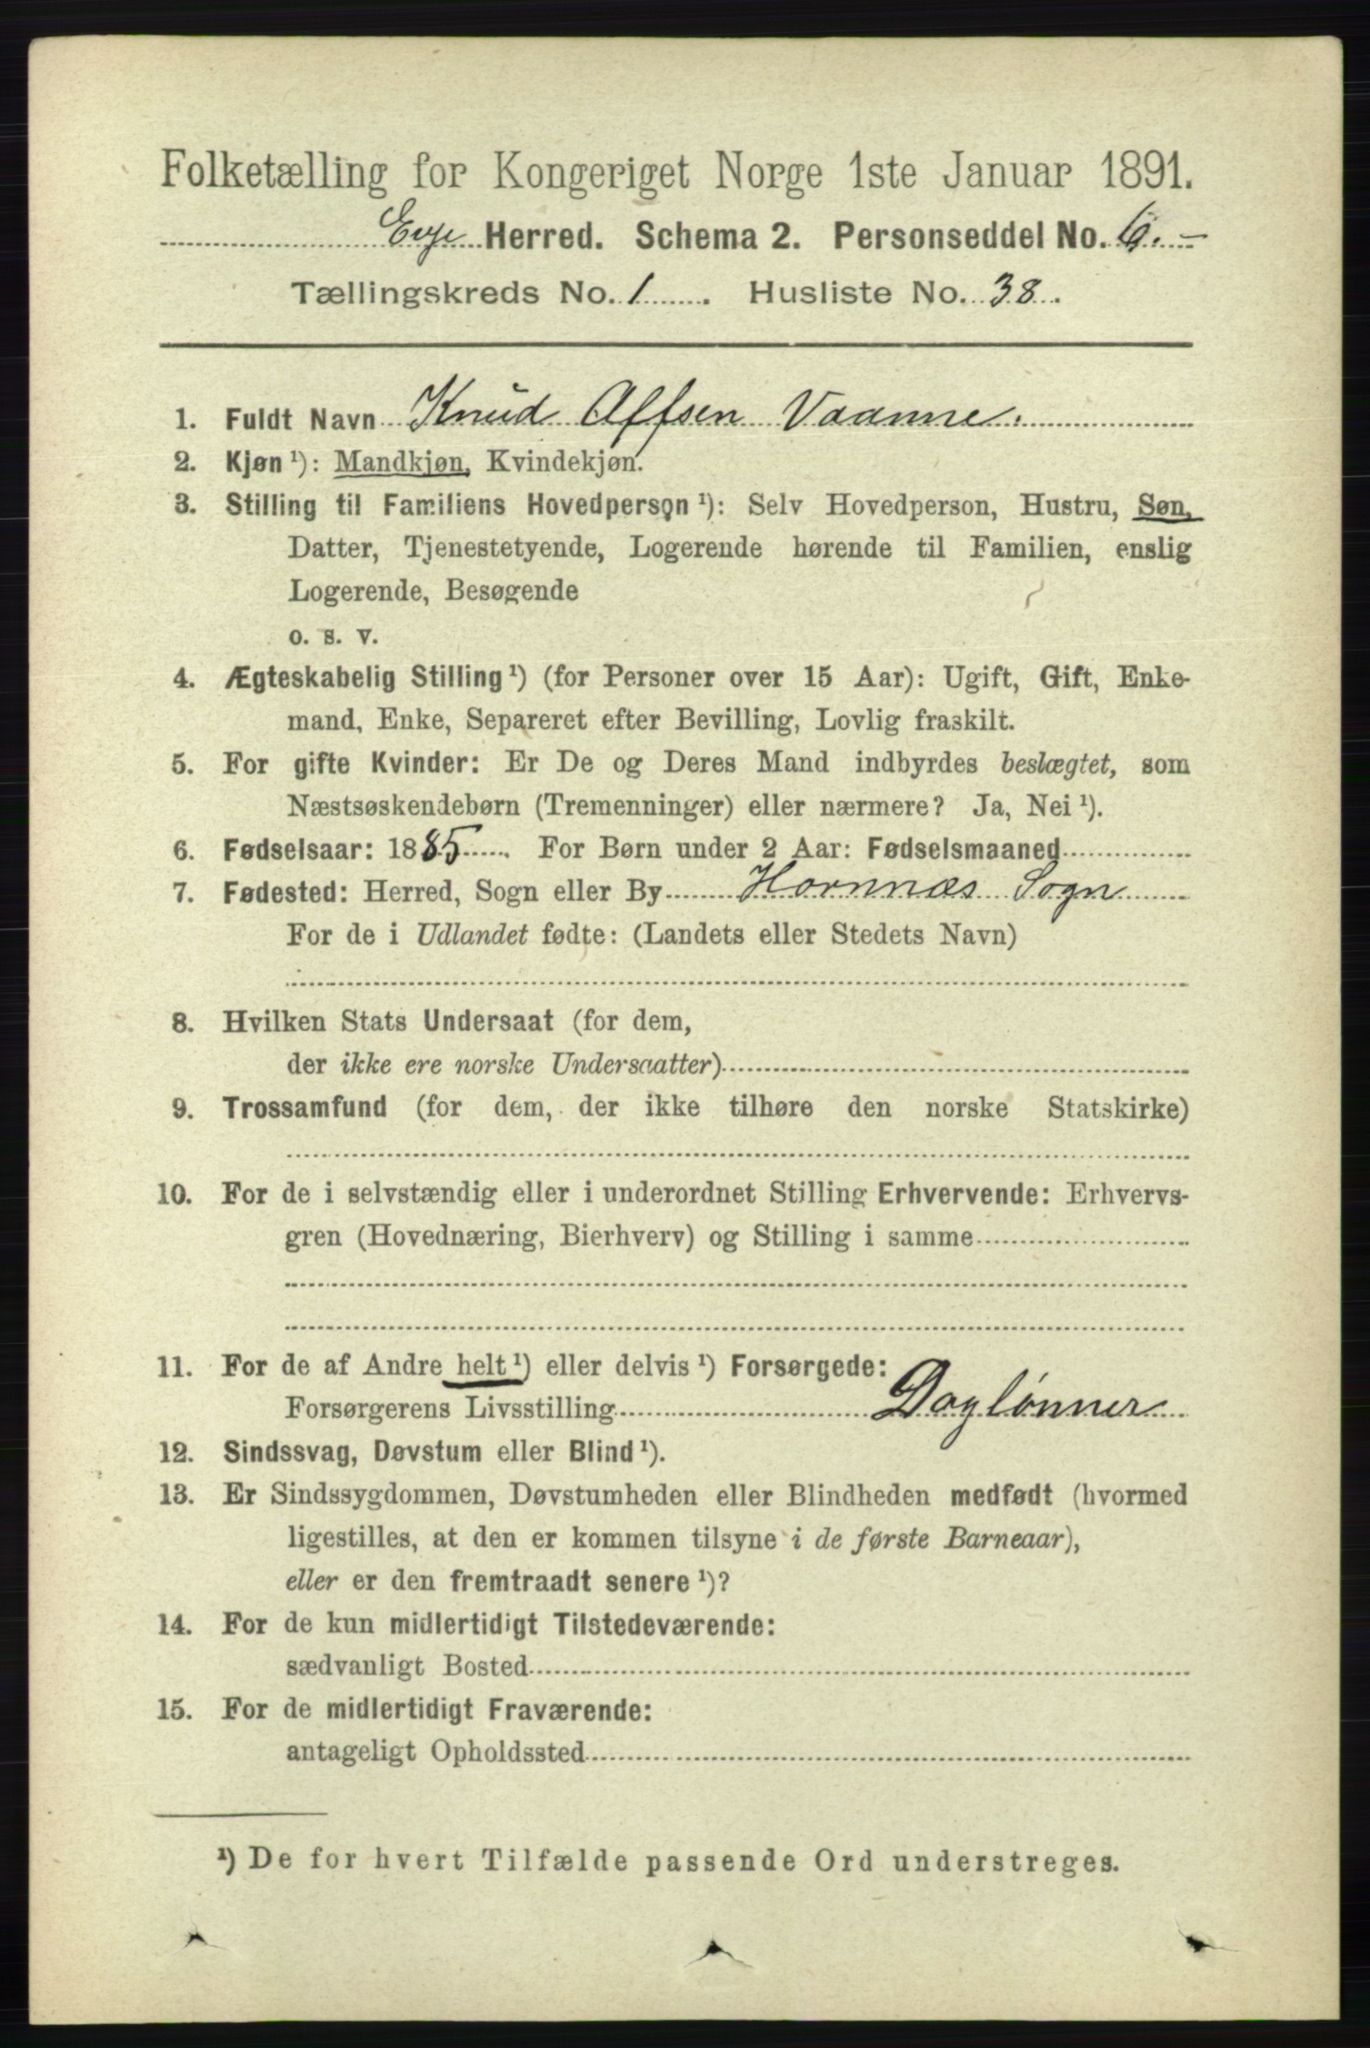 Folketælling for Kongeriget Norge 1ste Januar 1891.
Evje Herred. Schema 2. Personseddel No. 6.
Tællingskreds No. 1. Husliste No. 38.
1. Fuldt Navn Knud Affsen Vaanne.
2. Kjøn ¹): Mandkjøn, Kvindekjøn.
3. Stilling til Familiens Hovedperson ¹): Selv Hovedperson, Hustru, Søn,
Datter, Tjenestetyende, Logerende hørende til Familien, enslig
Logerende, Besøgende
o. s. v.
4. Ægteskabelig Stilling ¹) (for Personer over 15 Aar): Ugift, Gift, Enke-
mand, Enke, Separeret efter Bevilling, Lovlig fraskilt.
5. For gifte Kvinder: Er De og Deres Mand indbyrdes beslægtet, som
Næstsøskendebørn (Tremenninger) eller nærmere? Ja, Nei ¹).
6. Fødselsaar: 1885. For Børn under 2 Aar: Fødselsmaaned
7. Fødested: Herred, Sogn eller By Hornnæs Sogn
For de i Udlandet fødte: (Landets eller Stedets Navn)
8. Hvilken Stats Undersaat (for dem,
der ikke ere norske Undersaatter)
9. Trossamfund (for dem, der ikke tilhøre den norske Statskirke)
10. For de i selvstændig eller i underordnet Stilling Erhvervende: Erhvervs-
gren (Hovednæring, Bierhverv) og Stilling i samme
11. For de af Andre helt ¹) eller delvis ¹) Forsørgede:
Forsørgerens Livsstilling Daglønner
12. Sindssvag, Døvstum eller Blind ¹).
13. Er Sindssygdommen, Døvstumheden eller Blindheden medfødt (hvormed
ligestilles, at den er kommen tilsyne i de første Barneaar),
eller er den fremtraadt senere ¹)?
14. For de kun midlertidigt Tilstedeværende:
sædvanligt Bosted
15. For de midlertidigt Fraværende:
antageligt Opholdssted
¹) De for hvert Tilfælde passende Ord understreges.